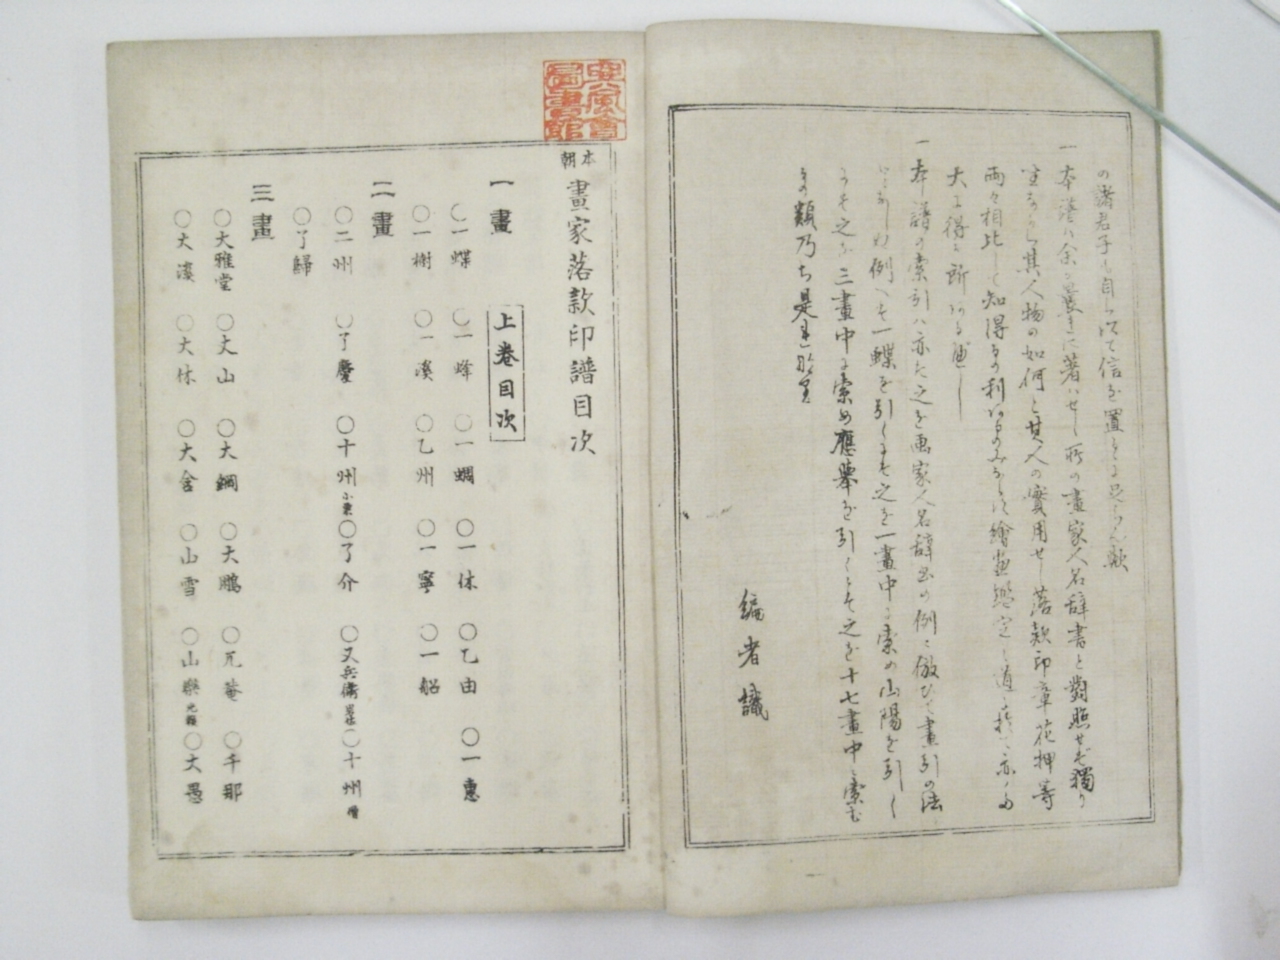 の諸君子も自ら以て信を置くに足らん歟
一本譜ハ余が曩きに著ハせし所の畫家人名辞書と對照せば獨り
其人物の如何と其人の實用せし落款印章花押等
両々相比して知得るの利
大に得る所ある可し
一本譜の索引ハ亦た之を画家人名辞書の例に倣ひて畫引の法
例へば一蝶を引くにも之を一畫中に索め山陽を引く
にも之を三畫中に索め應擧を引くにも之を十七畫中に索む
るの類乃ち是
編者識
本朝畫家落款印譜目次
上巻目次
一畫
〇一蝶 〇一蜂 〇一蜩 〇一休 〇乙由 〇一惠
〇一樹 〇一溪 〇乙州 〇一寧 〇一船
二畫
〇二州 〇了慶 〇十州 〇了介 〇又兵衛 〇十州僧
〇了歸
三畫
〇大雅堂 〇丈山 〇大綱 〇大鵬 〇兀菴 〇千那
〇大湊 〇大休 〇大含 〇山雪 〇山樂 〇大愚
圖書館